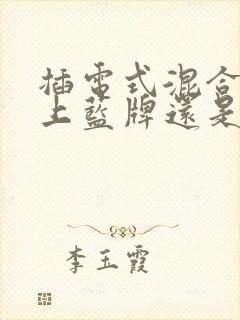 插電式混合
上藍牌還是
李玉霞